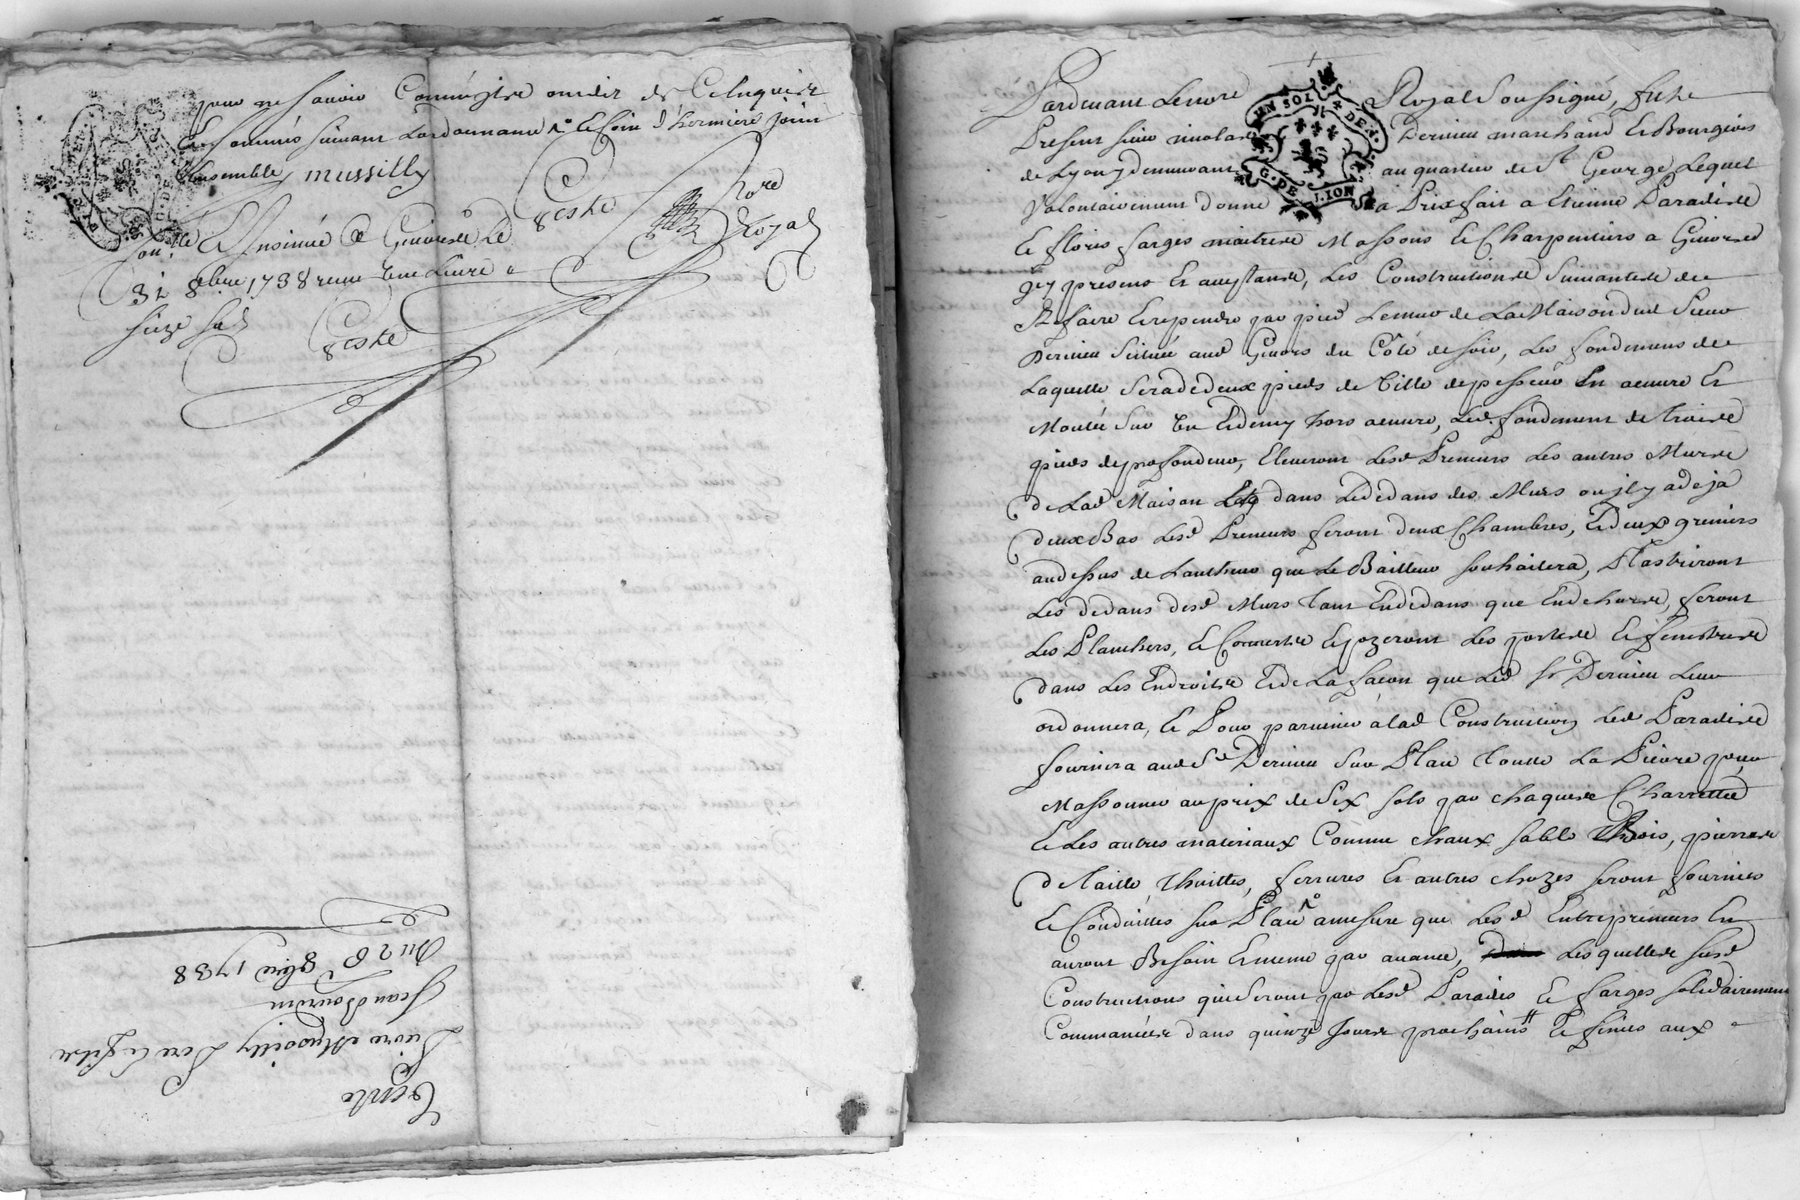 pour ne savoir Comme ilz ont dit de Ce Enquis et
Et sommés suivant Lordonnance Le soin d'hermiere joint
Ensemble, mussilly
Teste Nore Royal
Con.lé Et Insinué A Givors Le
31 8bre 1738 receu Une Livre
seize sols Teste
Vente
Pierre Mussilly Pere Et fils
Jean Bourdin
Du 28 8bre 1738
Pardevant Le Nore Royal Soussigné, fut
Present sieur nicolas Dervieu marchand Et Bourgeois
de Lyon y demeurant au quartier de St George, Lequel
Volontairement donne a Prixfait a Etienne Paradis
Et floris farges maitres Massons Et Charpentiers a Givors
icy presens Et acceptans, Les Constructions Suivantes de
Refaire Et reprendre par pied Le mur de La Maison dud Sieur
Dervieu Scituée aud Givors du Côté de soir, Les fondemens de
Laquelle sera de deux pieds de Ville d'epesseur En oeuvre Et
Montée sur Un Et demy hors oeuvre, Led. fondement de trois
pieds de profondeur, Eleveront Lesd Preneurs Les autres Murs
de Lad Maison dans Le dedans des Murs ou il y a deja
deux Bas Lesd Preneurs feront deux Chambres, Et deux greniers
audessus de hautheur que Le Bailleur souhaitera, Plastriront
Les dedans desd Murs tant Endedans que Endehors, feront
Les Planchers, Et Couverts Et pozeront Les portes Et fenestres
dans Les Endroits Et de La façon que Led Sr Dervieu Leur
ordonnera, Et Pour parvenir a lad Construction Led Paradis
fournira aud Sr Dervieu Sur Place Toutte La Pierre pour
Massonner au prix de Six sols par chaques Charrettée
Et Les autres materiaux Comme chaux sable Bois, pierres
de taille thuilles, ferrures Et autres chozes seront fournies
Et Conduittes sur Place amesure que Lesd Entrepreneurs En
auront Besoin Et meme par avance, Lesquelles susd
Constructions qui Seront par Lesd Paradis Et farges solidairement
Commancées dans quinze Jours prochains Et finies aux